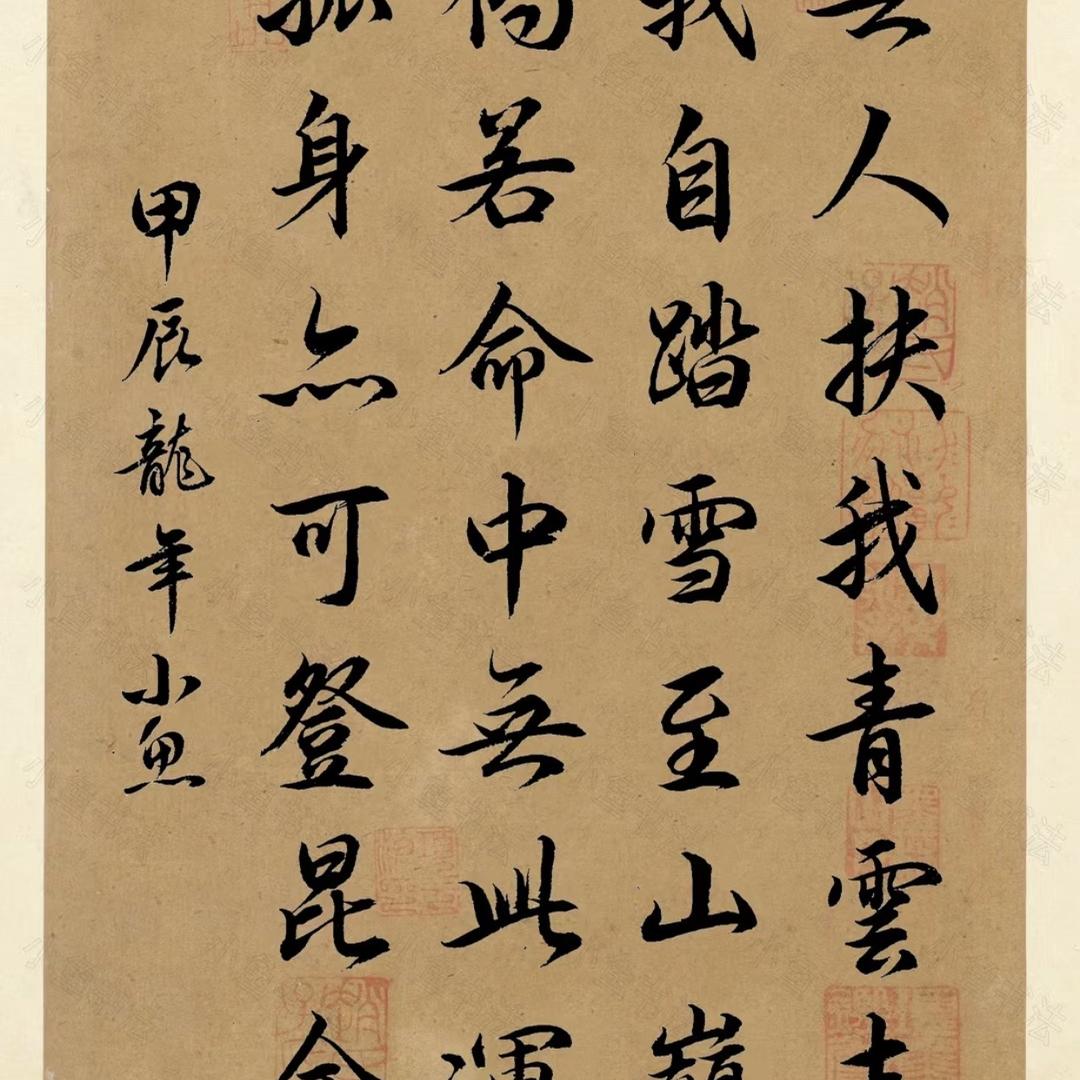 人扶我青雲
我自踏雪至山
倘若命中無此運
孤身亦可登昆
甲辰龍年小魚